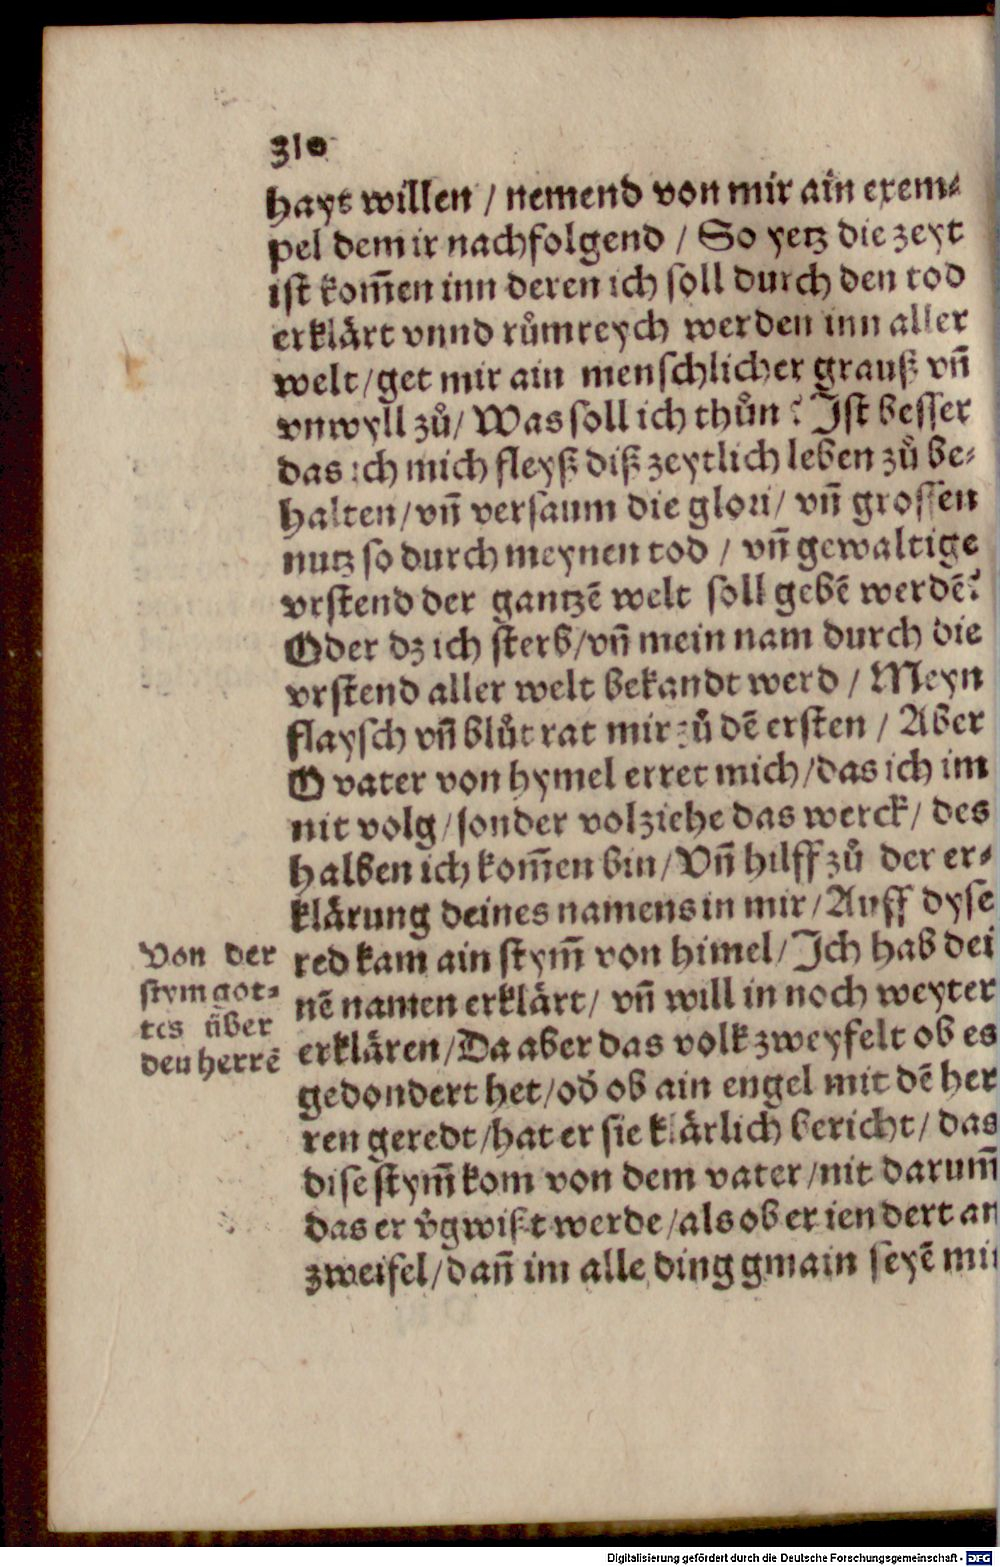 310
hayt willen / nemend von mir ain exem⸗
pel dem ir nachfolgend / So yetz die zeyt
ist kom̃en inn deren ich soll durch den tod
erklärt vnnd růmreych werden inn aller
welt / get mir ain menschlicher grauß vñ
vnwyll zů / Was soll ich thůn? Ist besser
das ich mich fleyß diß zeytlich leben zů be⸗
halten / vñ versaum die glori / vñ grossen
nutz so durch meynen tod / vñ gewaltige
vrstend der gantzẽ welt soll gebẽ werdẽ?
Oder dz ich sterb / vñ mein nam durch die
vrstend aller welt bekandt werd / Meyn
flaysch vñ blůt rat mir zů dẽ ersten / Aber
O vater von hymel erret mich / das ich im
nit volg / sonder volziehe das werck / des
halben ich kom̃en bin / Vñ hilff zů der er⸗
klärung deines namens in mir / Auff dyse
red kam ain stym̃ von himel / Ich hab dei
nẽ namen erklärt / vñ will in noch weyter
erklären / Da aber das volk zweyfelt ob es
gedondert het / od̾ ob ain engel mit dẽ her
ren geredt / hat er sie klärlich bericht / das
dise stym̃ kom von dem vater / nit darum̃
das er v̾gwißt werde / als ob er iendert an
zweifel / dañ im alle ding gmain seyẽ mit
Von der
stym got⸗
tes über
den herrẽ
Digitalisierung gefördert durch die Deutsche Forschungsgemeinschaft - DFG